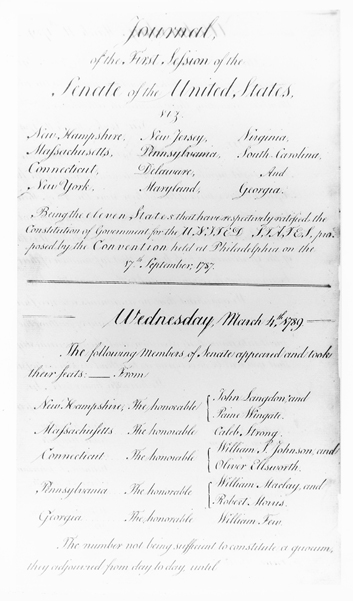 Journal,
of the First Session of the
Senate of the United States,
viz
New Hampshire, New Jersey, Virginia,
Massachusetts, Pennsylvania, South Carolina,
Connecticut, Delaware, And
New York. Maryland, Georgia.
Being the eleven States that have respectively ratified the
Constitution of Government for the UNITED STATES, pro-
posed by the Convention held at Philadelphia on the
17th September, 1787.
Wednesday, March 4th 1789
The following Members of Senate appeared and took
their seats: — From
New Hampshire, The honorable { John Langdon, and
Paine Wingate.
Massachusetts The honorable Caleb Strong.
Connecticut The honorable { William S. Johnson, and
Oliver Ellsworth.
Pennsylvania The honorable { William Maclay, and
Robert Morris.
Georgia The honorable William Few.
The number not being sufficient to constitute a quorum,
they adjourned from day to day, until